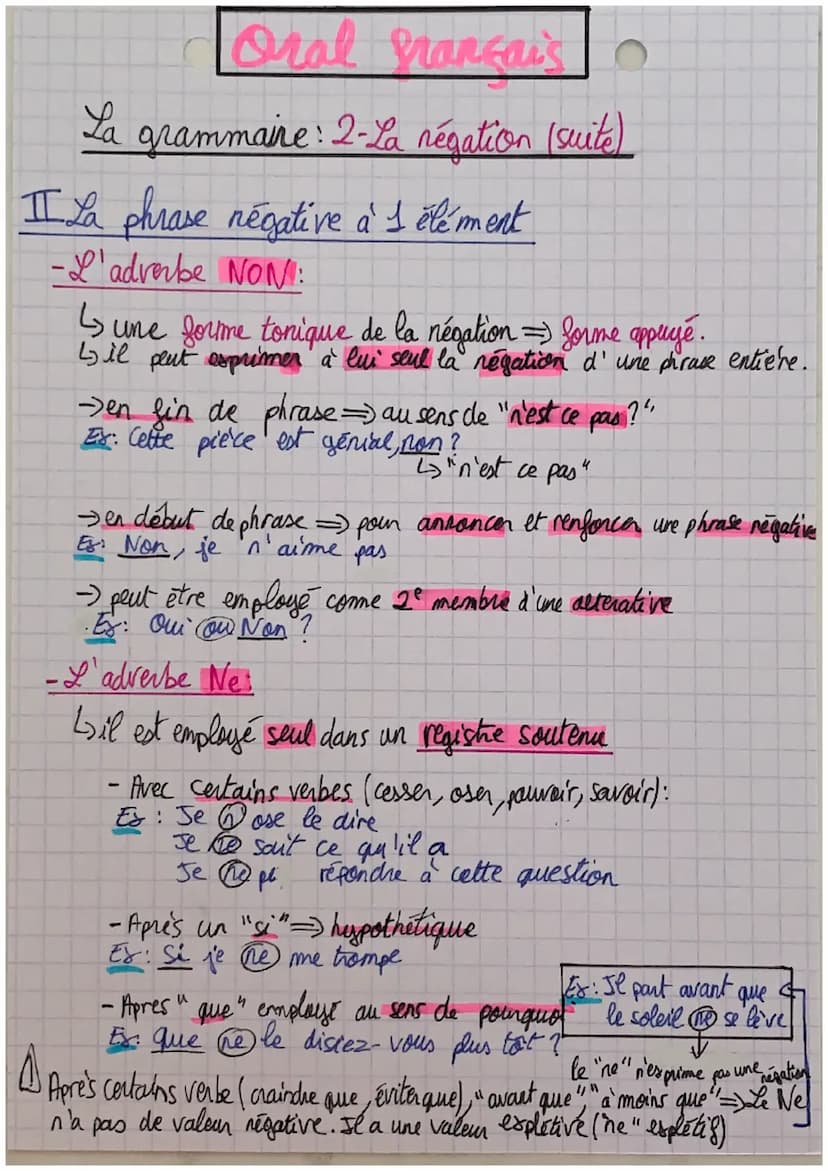 Oral français
La grammaire: 2-La négation (suite)
II La phrase négative à 1 élément
-L'adverbe NON:
↳ une forme tonique de la négation => forme appuyé.
↳ il peut exprimer à lui seul la négation d'une phrase entière.
→en fin de phrase => au sens de "n'est ce pas?"
Ex: Cette pièce est génial, non?
↳ "n'est ce pas"
→en début de phrase => pour annoncer et renforcer une phrase négative
Ex: Non, je n'aime pas
→ peut être employé comme 2e membre d'une alterative
Ex: Oui ou Non ?
-L'adverbe Ne:
↳ il est employé seul dans un registre soutenu
- Avec certains verbes (cesser, oser, pouvoir, savoir):
Ex: Je n'ose le dire
Je ne sait ce qu'il a
Je ne répondre à cette question
- Après un "si" => hypothétique
Ex: Si je ne me trompe
- Apres "que" employé au sens de pourquoi
Ex: que ne le disiez-vous plus tôt ?
Ex: Il part avant que
le soleil ne se lève
le "ne" n'exprime pas une négation
⚠ Après certains verbe (craindre que, éviter que), "avant que", "à moins que" => Le Ne
n'a pas de valeur négative. Il a une valeur explétive ("ne" explétif)